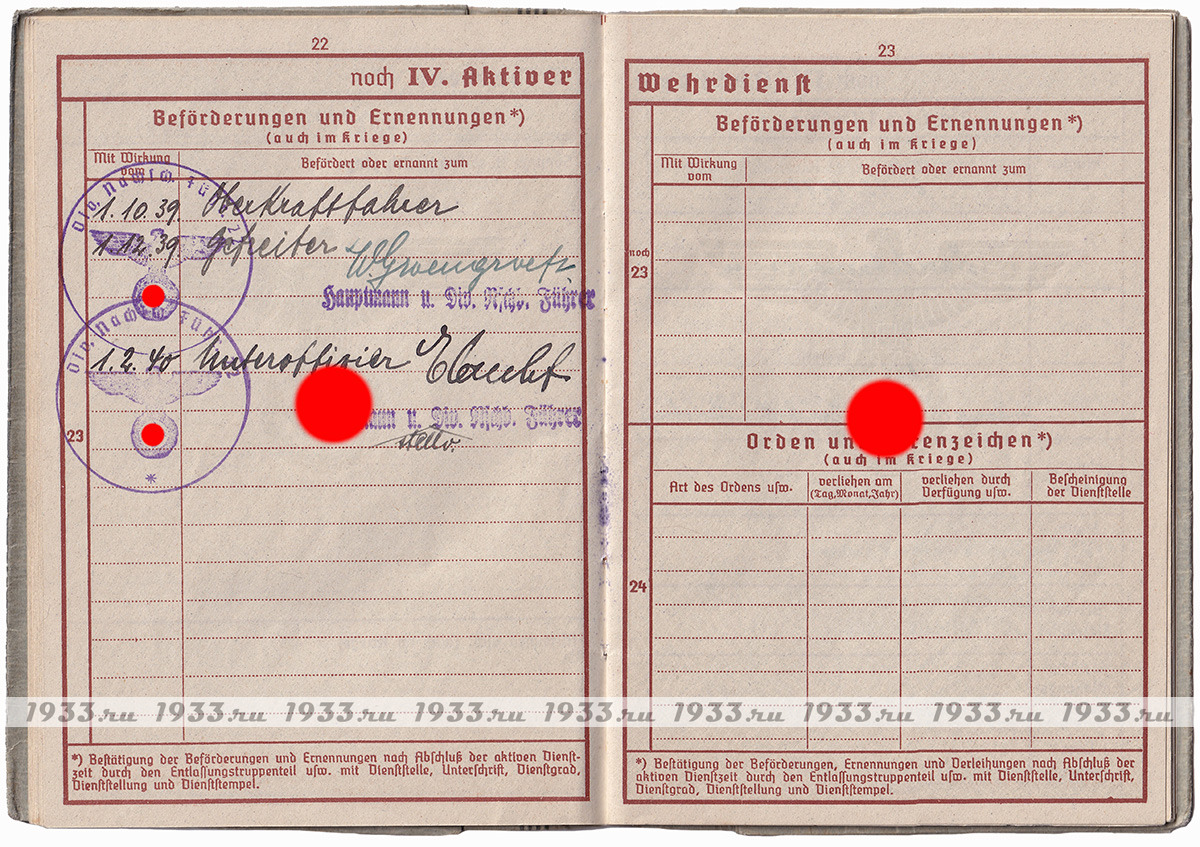 22
noch IV. Aktiver
Beförderungen und Ernennungen*)
(auch im Kriege)
Mit Wirkung vom
Befördert oder ernannt zum
1.10.39 Oberkraftfahrer
1.12.39 Gefreiter
Hauptmann u. Div. Nschb. Führer
1.2.40 Unteroffizier
mann u. Div. Nschb. Führer
stellv.
23
*) Bestätigung der Beförderungen und Ernennungen nach Abschluß der aktiven Dienst-
zeit durch den Entlassungstruppenteil usw. mit Dienststelle, Unterschrift, Dienstgrad,
Dienststellung und Dienststempel.
23
Wehrdienst
Beförderungen und Ernennungen*)
(auch im Kriege)
Mit Wirkung vom
Befördert oder ernannt zum
noch
23
Orden un renzeichen*)
(auch im Kriege)
Art des Ordens usw.
verliehen am
(Tag, Monat, Jahr)
verliehen durch
Verfügung usw.
Bescheinigung
der Dienststelle
24
*) Bestätigung der Beförderungen, Ernennungen und Verleihungen nach Abschluß der
aktiven Dienstzeit durch den Entlassungstruppenteil usw. mit Dienststelle, Unterschrift,
Dienstgrad, Dienststellung und Dienststempel.
1933.ru 1933.ru 1933.ru 1933.ru 1933.ru 1933.ru 1933.ru 1933.ru 1933.ru